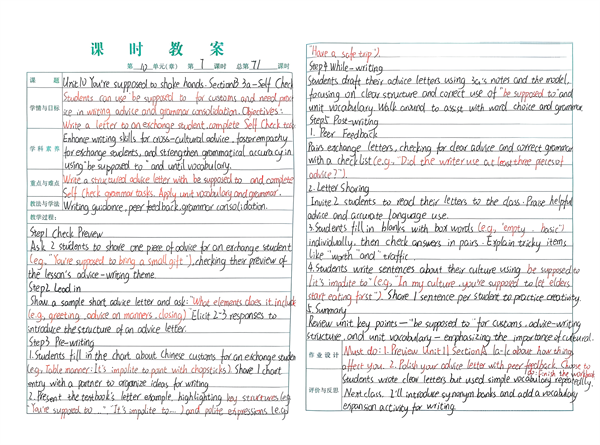 课 时 教 案
第 10 单元(章) 第 7 课时 总第 71 课时
课 题
Unit 10 You're supposed to shake hands. Section B 3a-Self Check
学情与目标
Students can use be supposed to for customs and need practice in writing advice and grammar consolidation. Objectives:
Write a letter to an exchange student, complete Self Check tasks
学科素养
Enhance writing skills for cross-cultural advice, foster empathy
for exchange students, and strengthen grammatical accuracy in
using "be supposed to" and until vocabulary.
重点与难点
Write a structured advice letter with be supposed to and complete
Self Check grammar tasks. Apply unit vocabulary and grammar.
教法与学法
Writing guidance, peer feedback, grammar consolidation.
教学过程:
Step1 Check Preview
Ask 2 students to share one piece of advice for an exchange student
(e.g. "You're supposed to bring a small gift"), checking their preview of
the lesson's advice-writing theme.
Step2 Lead in
Show a sample short advice letter and ask: "What elements does it include
(e.g., greeting, advice on manners, closing)" Elicit 2-3 responses to
introduce the structure of an advice letter.
Step3 Pre-writing
1. Students fill in the chart about Chinese customs for an exchange student
(e.g, Table manner: It's impolite to point with chopsticks). Share 1 chart
entry with a partner to organize ideas for writing.
2. Present the textbook's letter example, highlighting key structures (e.g
"You're supposed to ..." "It's impolite to...) and polite expressions (e.g)
"Have a safe trip").
Step4 While-writing
Students draft their advice letters using 3a's notes and the model,
focusing on clear structure and correct use of "be supposed to" and
unit vocabulary. Walk around to assist with word choice and grammar
Step5 Post-writing
1. Peer Feedback
Pairs exchange letters, checking for clear advice and correct grammar
with a checklist (e.g., "Did the writer use at least three pieces of
advice?").
2. Letter Sharing
Invite 2 students to read their letters to the class. Praise helpful
advice and accurate language use.
3. Students fill in blanks with box words (e.g., "empty, basic")
individually, then check answers in pairs. Explain tricky items
like "worth" and "traffic.
4. Students write sentences about their culture using be supposed to
/it's impolite to" (e.g., "In my culture, you're supposed to let elders
start eating first"). Share 1 sentence per student to practice creativity.
5. Summary
Review unit key points — "be supposed to" for customs, advice-writing
structure, and unit vocabulary — emphasizing the importance of cultural.
作业设计
Must do: 1. Preview Unit 11 Section A 1a-1c about how things
affect you. 2. Polish your advice letter with peer feedback. Choose to
do: Finish the workbook
评价与反思
Students wrote clear letters but used simple vocabulary repeatedly.
Next class, I'll introduce synonym banks and add a vocabulary
expansion activity for writing.